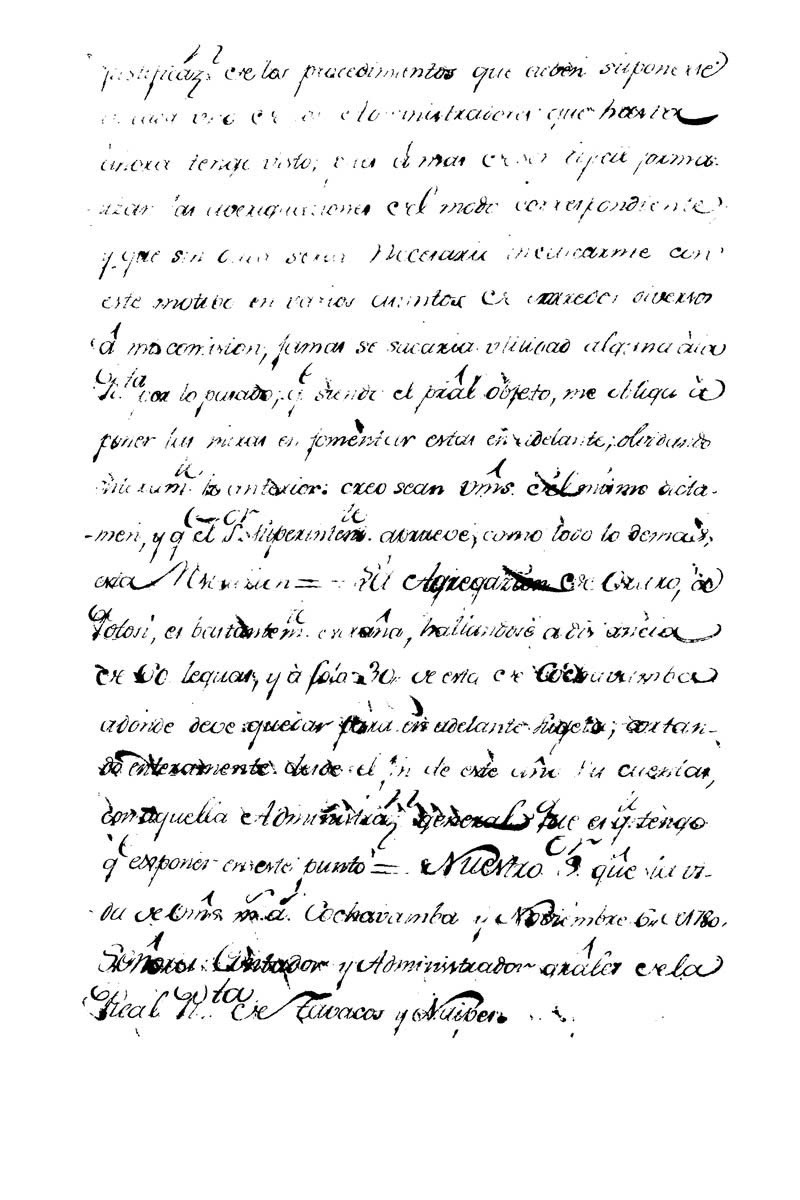 justificaz.n de los procedimientos que deben suponerse
en cada uno de los Administradores que hasta
ahora tengo visto; pues á mas de ser dificil forma-
lizar las averiguaciones del modo correspondiente,
y que sin duda seria necesario indicarme con
este motivo en varios cuentos de enrredos diversos
á mi comision, jamas se sacaria utilidad alguna á la
R.ta por lo pasado; q.e siendo el prãl objeto, me obliga á
poner las miras en fomentar estas en adelante, olvidando
lo anterior: creo sean Vm̃s. del mismo dicta-
men, y q.e el S.or Superintend.te aprueve, como todo lo demas,
esta = La Agregazion de Oruro, à
Potosi, es bastantem.te estraña, hallandose a distancia
de 60 leguas, y à solo 30 de esta de Cochavamba
adonde deve quedar para en adelante sugeta; cortan-
do enteramente desde el fin de este año sus cuentas,
con aquella Administraz.n general que es q.to tengo
q.e exponer en este punto = Nuestro S.or gũe la vi-
da de Vm̃s. m.s a.s Cochavamba y Noviembre 6 de 1780.
Señores Contador y Administrador gñales de la
Real R.ta de Tavacos y Naipes.